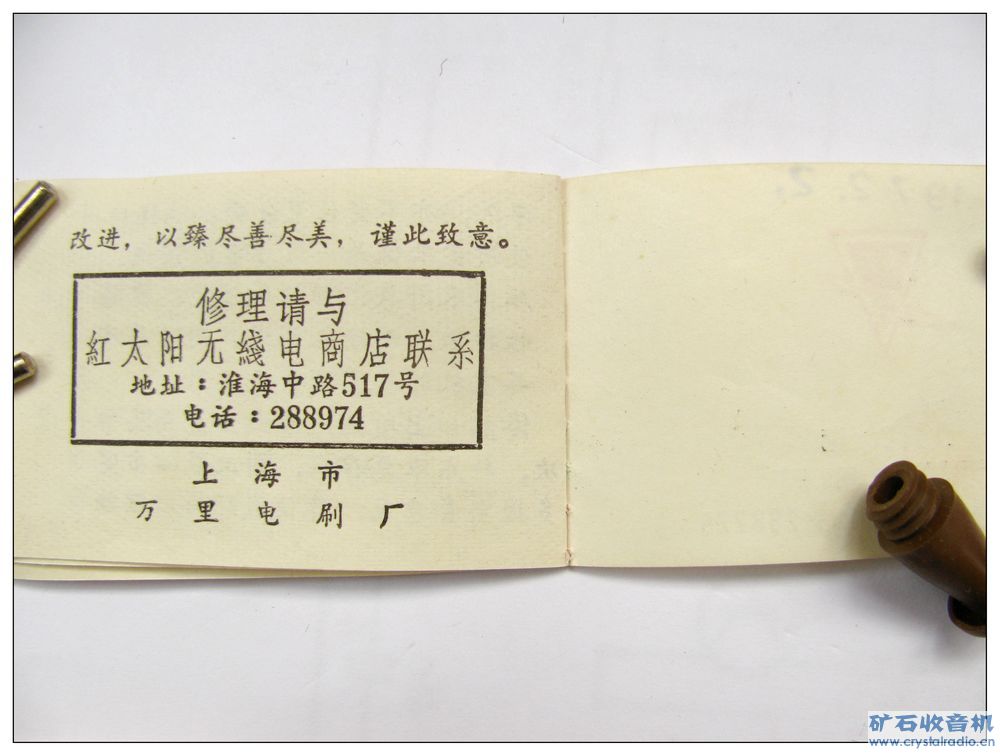 改进，以臻尽善尽美，谨此致意。
修理请与
紅太阳无綫电商店联系
地址：淮海中路517号
电话：288974
上海市
万里电刷厂
矿石收音机
www.crystalradio.cn